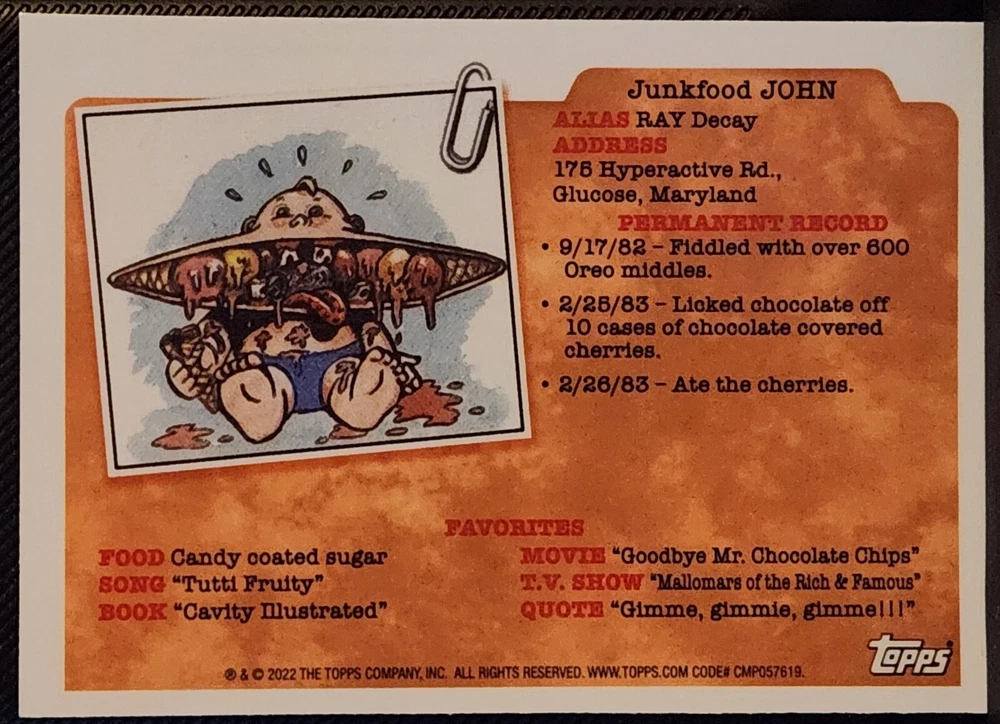 Junkfood JOHN
ALIAS RAY Decay
ADDRESS
175 Hyperactive Rd.,
Glucose, Maryland
PERMANENT RECORD
• 9/17/82 – Fiddled with over 600
Oreo middles.
• 2/25/83 – Licked chocolate off
10 cases of chocolate covered
cherries.
• 2/26/83 – Ate the cherries.
FAVORITES
FOOD Candy coated sugar
SONG "Tutti Fruity"
BOOK "Cavity Illustrated"
MOVIE "Goodbye Mr. Chocolate Chips"
T.V. SHOW "Mallomars of the Rich & Famous"
QUOTE "Gimme, gimmie, gimme!!!"
® & © 2022 THE TOPPS COMPANY, INC. ALL RIGHTS RESERVED. WWW.TOPPS.COM CODE# CMP057619.
TOPPS